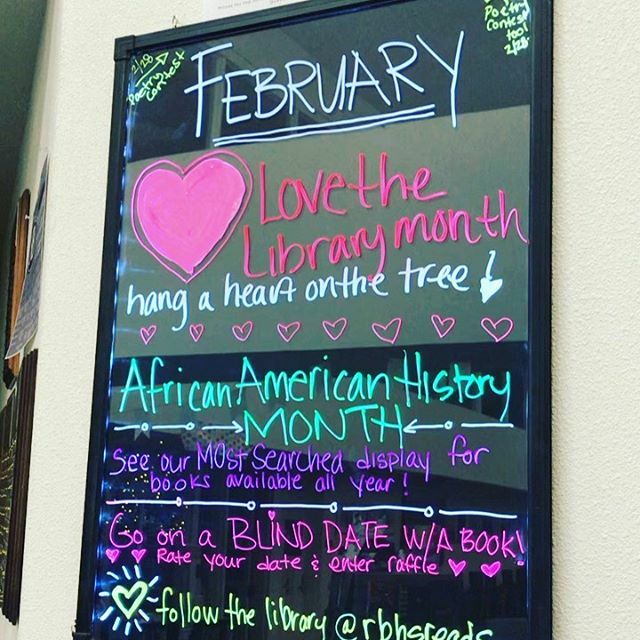 2/28
Poetry
Contest
Poetry
Contest
too!
2/28
FEBRUARY
Love the
Library month
hang a heart on the tree
African American History
MONTH
See our MOST Searched display for
books available all year!
Go on a BLIND DATE W/A BOOK!
Rate your date & enter raffle
follow the library @rbhsreads